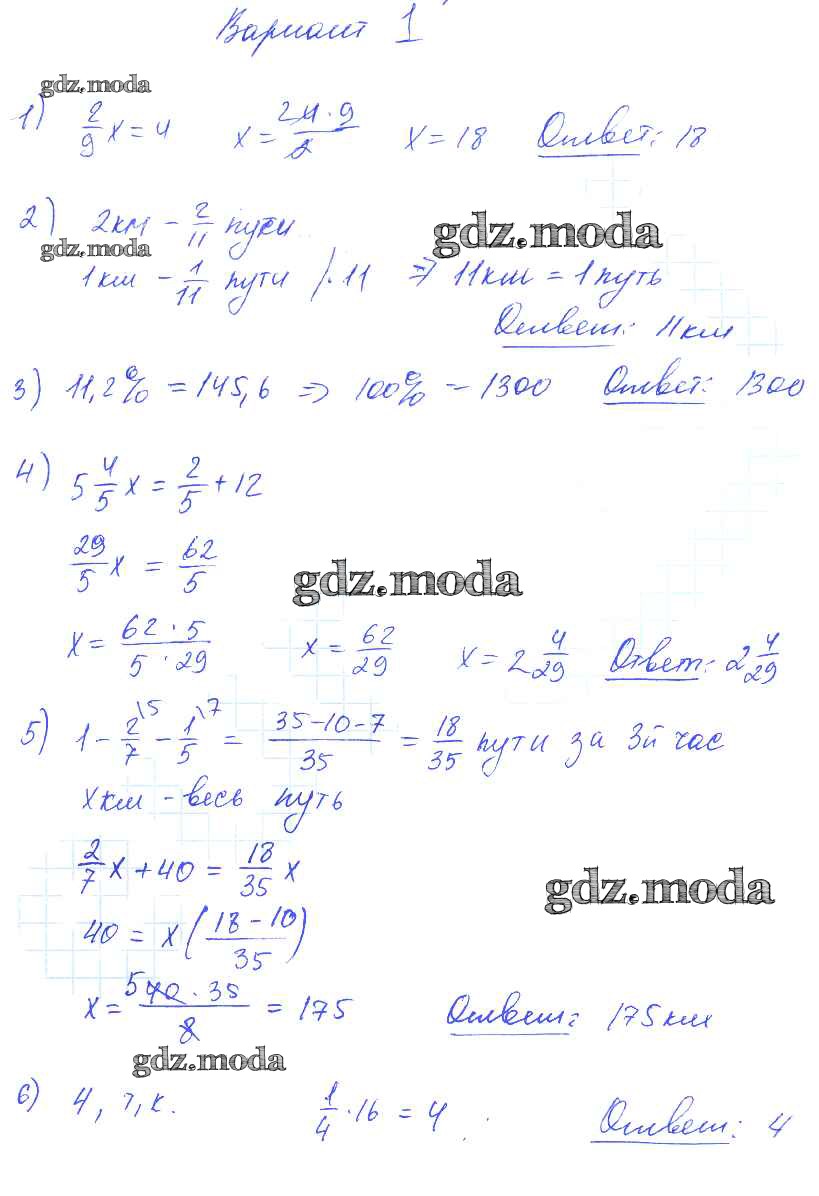 Вариант 1
gdz.moda
1) 2/9 x = 4   x = 2 4 · 9 / 2   x = 18   Ответ: 18
2) 2км – 2/11 пути
gdz.moda   gdz.moda
1км – 1/11 пути /· 11 ⇒ 11км = 1 путь
Ответ: 11км
3) 11,2% = 145,6 ⇒ 100% – 1300   Ответ: 1300
4) 5 4/5 x = 2/5 + 12
29/5 x = 62/5
gdz.moda
x = 62 · 5 / 5 · 29   x = 62/29   x = 2 4/29   Ответ: 2 4/29
5) 1 – 2/7 \5 – 1/5 \7 = 35–10–7 / 35 = 18/35 пути за 3й час
x км – весь путь
2/7 x + 40 = 18/35 x
gdz.moda
40 = x ( 18 – 10 / 35 )
x = 5 40 · 35 / 8 = 175   Ответ: 175км
gdz.moda
6) 4, т.к.   1/4 · 16 = 4   Ответ: 4